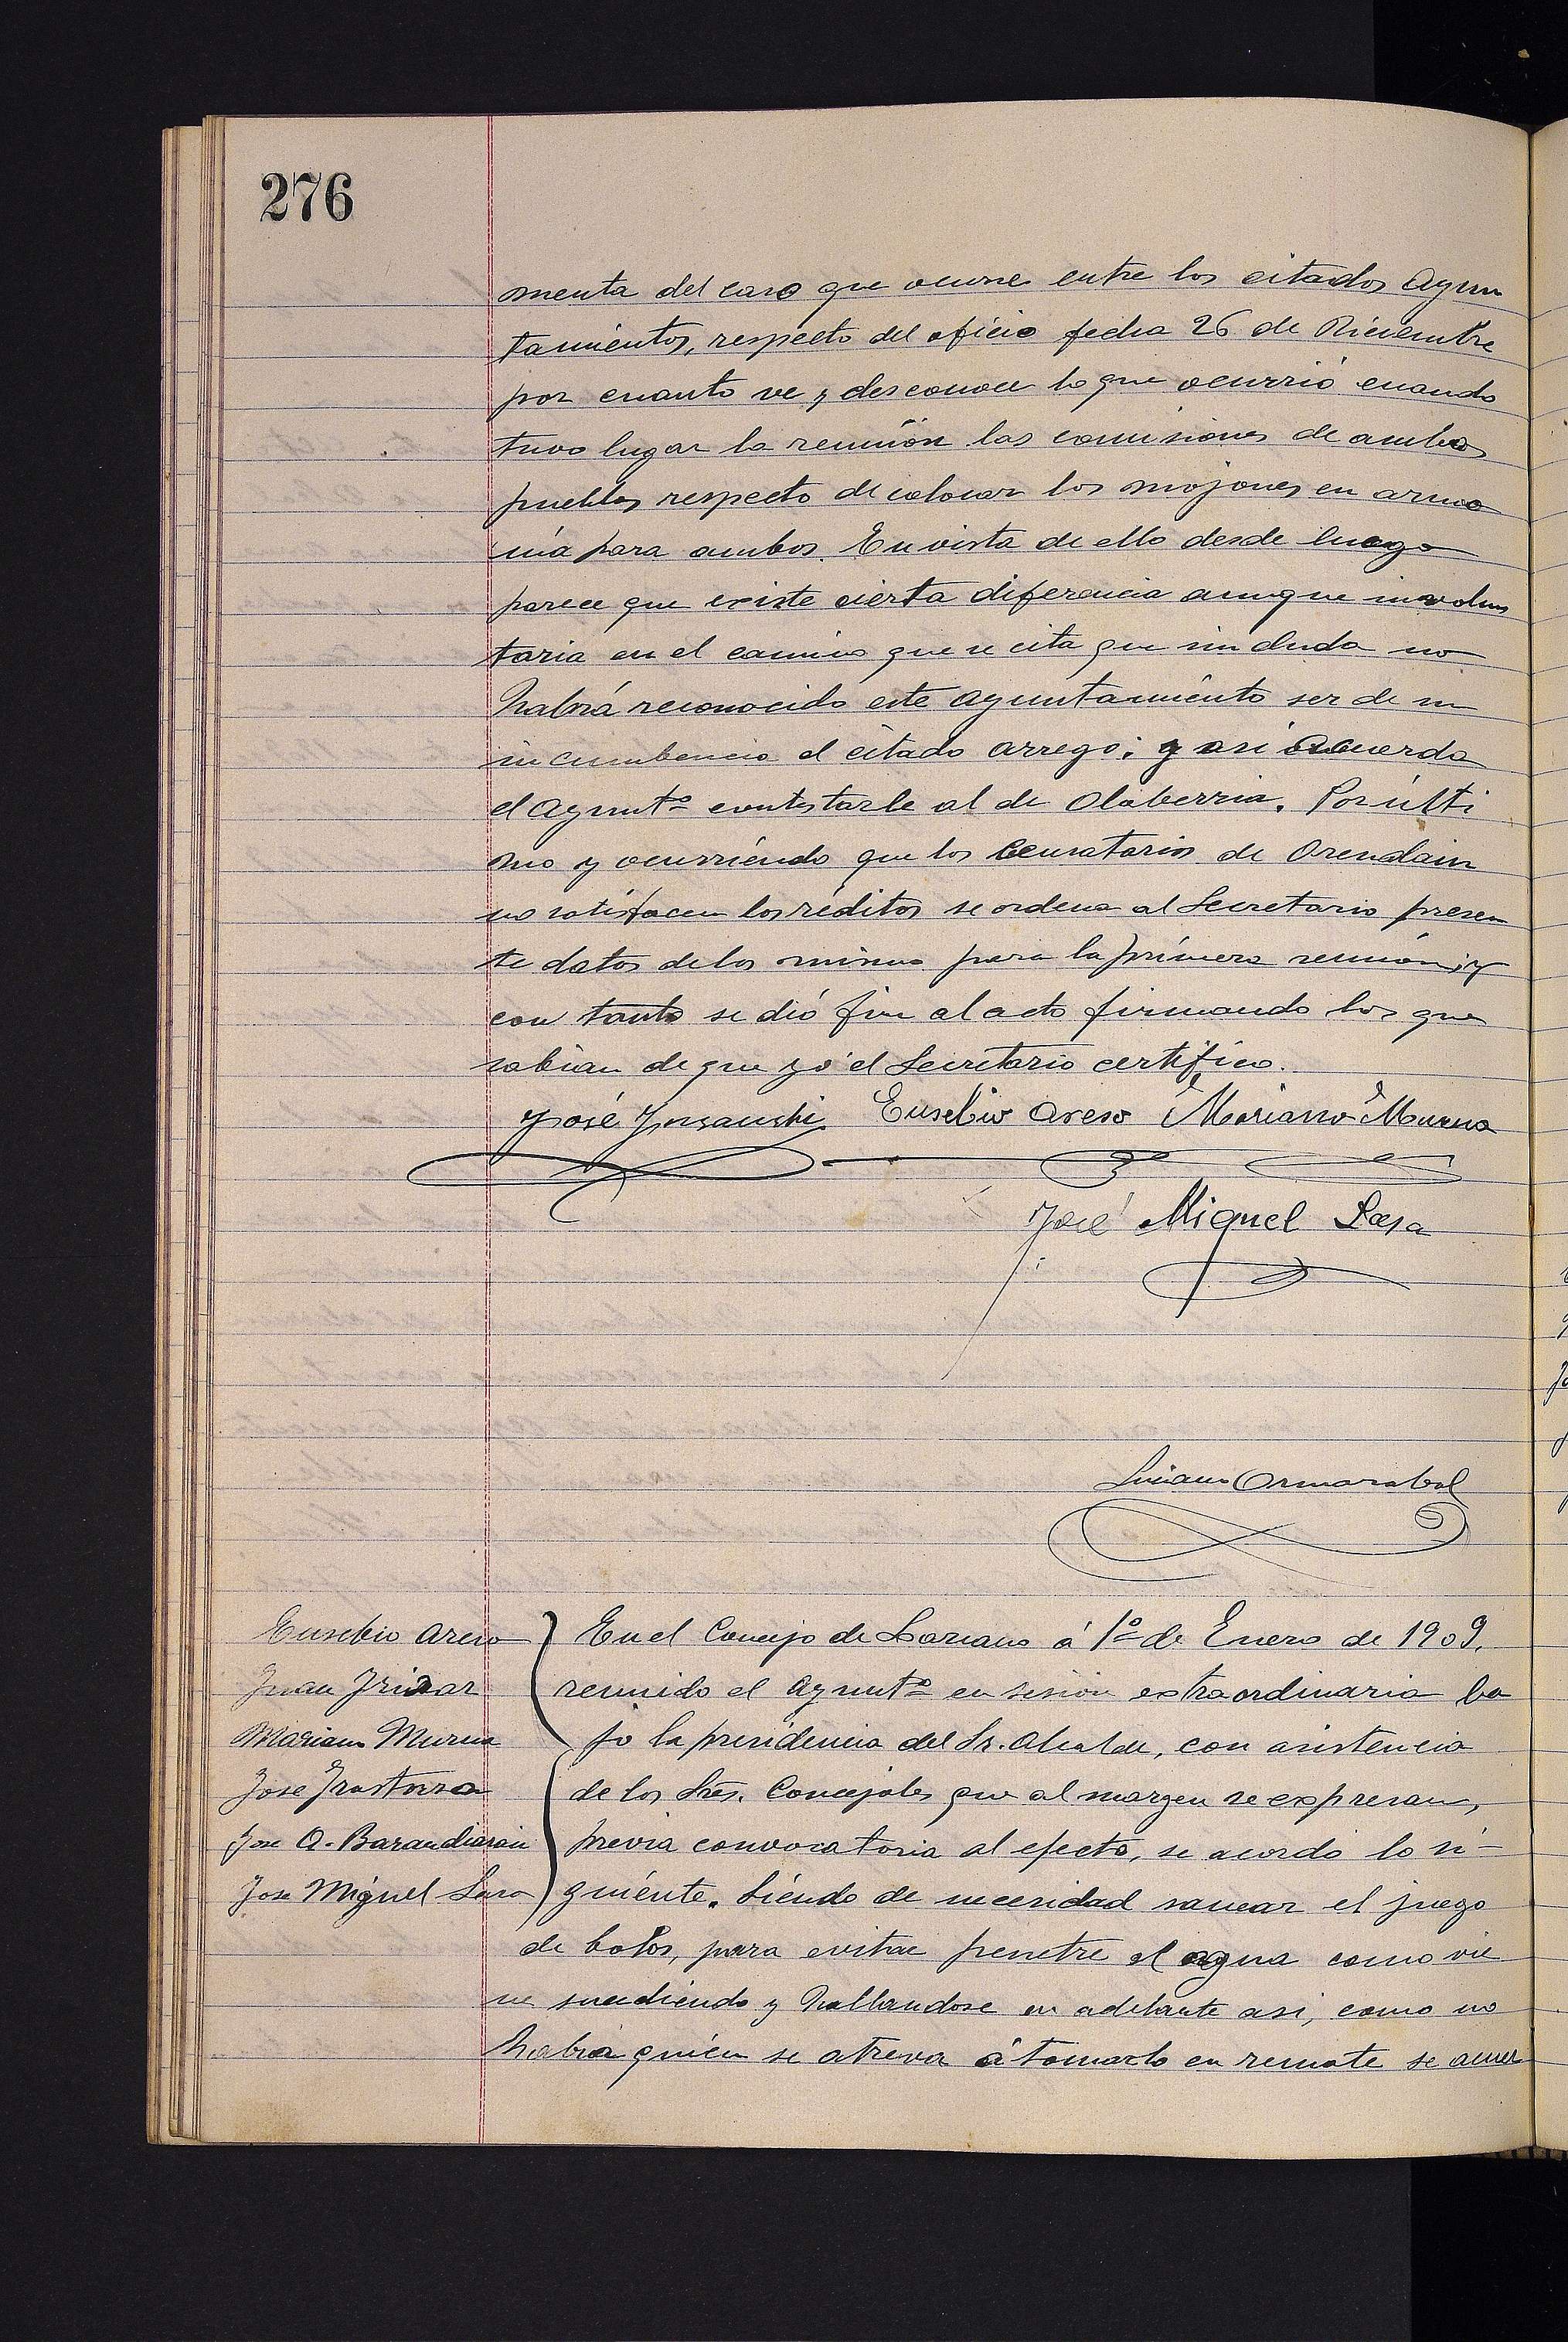 276
menta del caso que ocurre entre los citados Ayun
tamientos, respecto del oficio fecha 26 de Diciembre
por cuanto ve y desconoce lo que ocurrió cuando
tuvo lugar la reunión las comisiones de ambos
pueblos respecto de colocar los mojones en armo
nía para ambos. En vista de ello desde luego
parece que existe cierta diferencia aunque involun
taria en el camino que se cita que sin duda no
habrá reconocido este Ayuntamiento ser de su
incumbencia el citado arrego; y asi acuerda
el Ayuntº contestarle al de Olaberria. Por últi
mo y ocurriendo que los Censatarios de Orendain
no satisfacen los réditos se ordena al Secretario presen
te datos de los mismos para la primera reunión; y
con tanto se dió fin al acto firmando los que
sabian de que yo el Secretario certifico.
José Eusebio Areso Mariano Murua
José Miguel Lasa
Luciano Ormazabal
Eusebio Areso
Juan Irizar
Mariano Murua
Jose Irastorza
Jose A. Barandiaran
Jose Miguel Lasa
En el Concejo de Lazcano á 1º de Enero de 1909.
reunido el Ayuntº en sesión extraordinaria ba
jo la presidencia del Sr. Alcalde, con asistencia
de los Sres. Concejales que al margen se expresan,
previa convocatoria al efecto, se acordó lo si-
guiente. Siendo de necesidad sanear el juego
de bolos, para evitar penetre el agua como vie
ne sucediendo y hallandose en adelante asi, como no
habra quién se atreva á tomarlo en remate se acuer